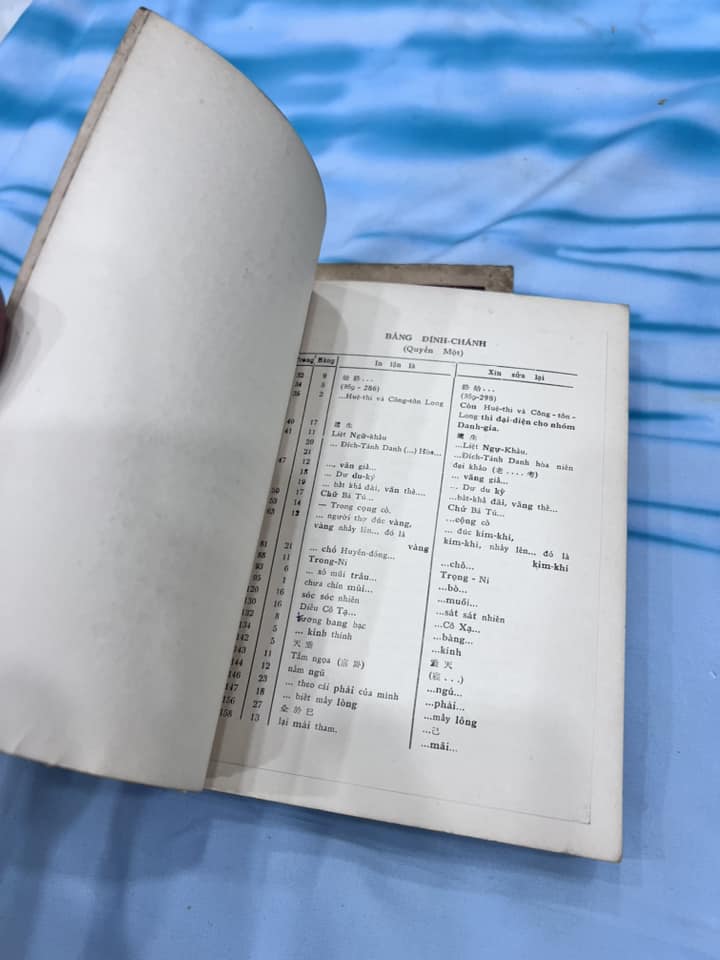 BẢNG ĐÍNH-CHÁNH
(Quyển Một)
Trang Hàng In lộn là Xin sửa lại
33 9 ...
34 5 (369 - 286) (369-298)
36 2 ...Huệ-thi và Công-tôn Long Còn Huệ-thi và Công - tôn-
Long thì đại-diện cho nhóm
Danh-gia.
40 17 生 生
41 11 Liệt Ngữ-khâu ...Liệt Ngự-Khấu.
20 ... Đích-Tánh Danh (...) Hòa... ...Đích-Tánh Danh hòa niên
21 đại khảo (老 .... 考)
47 12 ..., văn giả... ... vãng giả...
18 ... Dư du-ký ... Dư du ký
19 ... bất khả đãi, văn thế.... ...bất-khả đãi, vãng thế...
50 17 Chữ Bá Tú... Chữ Bá Tú...
53 14 — Trong cọng cỏ. ...cộng cỏ
63 12 ... người thợ đúc vàng, ... đúc kim-khí,
vàng nhảy lên... đó là kim-khí, nhảy lên... đó là
vàng kim-khí
81 21 ... chó Huyền-đông... ...chỗ...
88 11 Trong-Ni Trọng - Ni
93 6 ... xỏ mũi trâu... ...bò...
95 1 chưa chín mùi... ...muồi...
120 16 sóc sóc nhiên ...sát sát nhiên
130 16 Diều Cô Tạ... ...Cô Xạ...
132 8 tưởng bang bạc ...bàng...
134 5 ... kinh thính ...kính
142 5 天 天
144 11 Tầm ngọa
146 12 nấm ngủ ...ngủ...
147 23 ... theo cái phải của mình ...phải...
156 18 ... biết mấy lòng ...mấy lông
27 於 巳 ...己
158 13 lại mải tham. ...mãi...